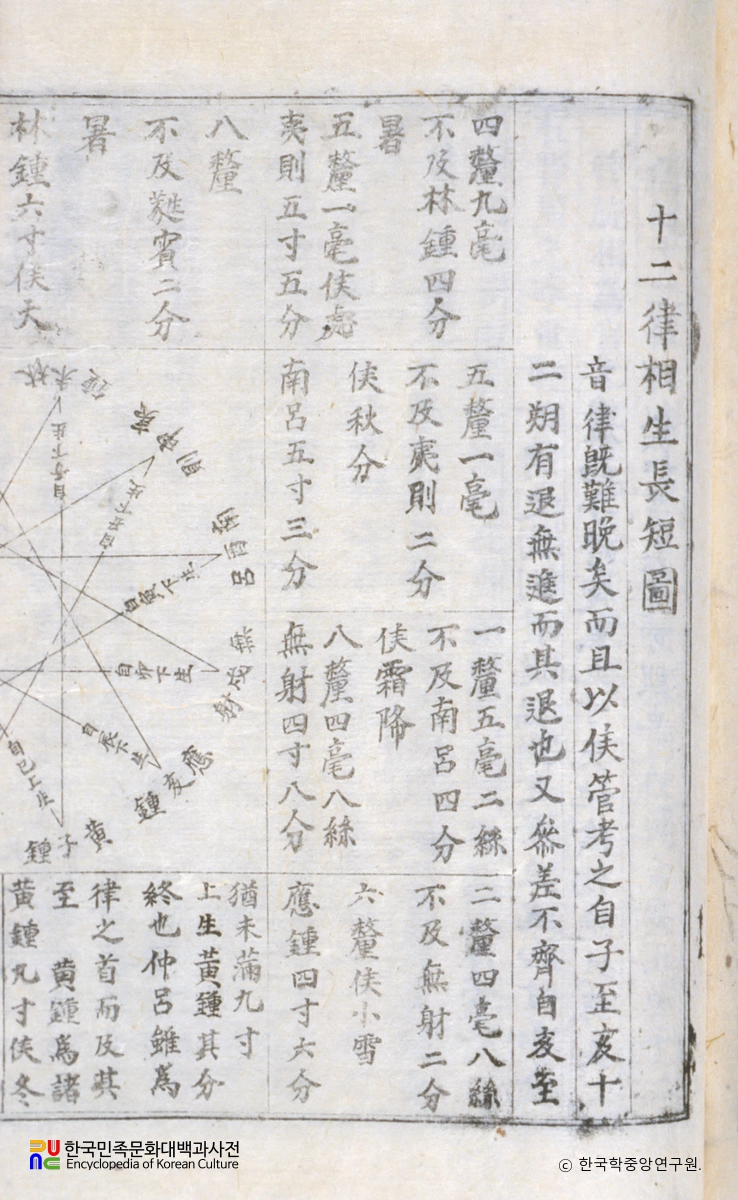 十二律相生長短圖
音律旣難晚矣而且以候管考之自子至亥十
二朔有退無進而其退也又參差不齊自亥至
四釐九毫
不及林鍾四分
暑
五釐一毫候處
夷則五寸五分
八釐
不及蕤賓二分
暑
林鍾六寸候大
五釐一毫
不及夷則二分
候秋分
南呂五寸三分
一釐五毫二絲
不及南呂四分
候霜降
八釐四毫八絲
無射四寸八分
二釐四毫八絲
不及無射二分
六釐候小雪
應鍾四寸六分
猶未滿九寸
上生黃鍾其分
終也仲呂雖爲
律之首而及其
至 黃鍾爲諸
黃鍾九寸候冬
林未鍾
夷申則
南酉呂
無戌射
應亥鍾
黃子鍾
自子下生
自寅下生
自卯下生
自辰下生
自巳上生
한국민족문화대백과사전
Encyclopedia of Korean Culture
© 한국학중앙연구원.